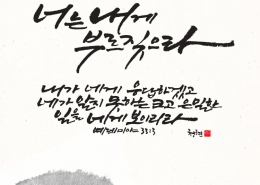 너는 내게
부르짖으라
내가 네게 응답하겠고
네가 알지 못하는 크고 은밀한
일을 네게 보이리라
예레미야 33:3